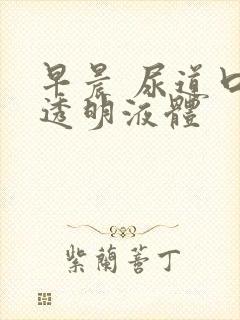 早晨 尿道口
透明液體
紫蘭蓍丁